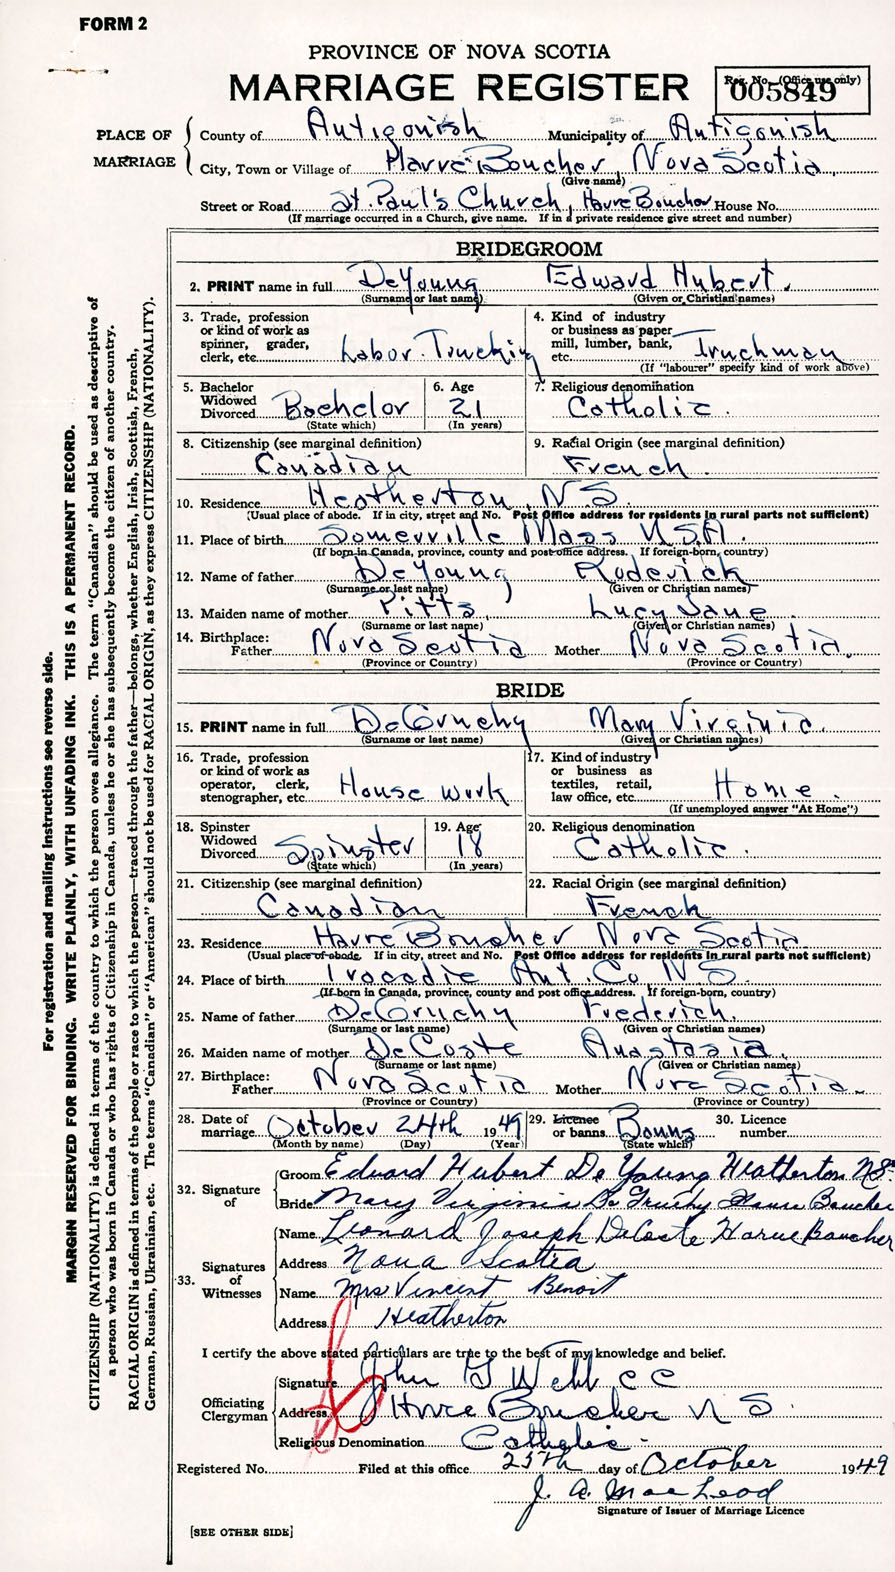 FORM 2
PROVINCE OF NOVA SCOTIA
MARRIAGE REGISTER
Reg. No. (Office use only)
005849
PLACE OF MARRIAGE
County of Antigonish Municipality of Antigonish
City, Town or Village of Havre Boucher, Nova Scotia
(Give name)
Street or Road St. Paul's Church, Havre Boucher House No.
(If marriage occurred in a Church, give name. If in a private residence give street and number)
BRIDEGROOM
2. PRINT name in full DeYoung Edward Hubert.
(Surname or last name) (Given or Christian names)
3. Trade, profession or kind of work as spinner, grader, clerk, etc. Labor. Trucking
4. Kind of industry or business as paper mill, lumber, bank, etc. Truckman
(If "labourer" specify kind of work above)
5. Bachelor Widowed Divorced Bachelor
(State which)
6. Age 21
(In years)
7. Religious denomination Catholic.
8. Citizenship (see marginal definition) Canadian
9. Racial Origin (see marginal definition) French.
10. Residence Heatherton, N.S.
(Usual place of abode. If in city, street and No. Post Office address for residents in rural parts not sufficient)
11. Place of birth Somerville Mass U.S.A.
(If born in Canada, province, county and post office address. If foreign-born, country)
12. Name of father DeYoung, Roderick
(Surname or last name) (Given or Christian names)
13. Maiden name of mother Pitts Lucy Jane.
(Surname or last name) (Given or Christian names)
14. Birthplace: Father Nova Scotia Mother Nova Scotia.
(Province or Country) (Province or Country)
BRIDE
15. PRINT name in full DeGruchy Mary Virginia.
(Surname or last name) (Given or Christian names)
16. Trade, profession or kind of work as operator, clerk, stenographer, etc. House work
17. Kind of industry or business as textiles, retail, law office, etc. Home.
(If unemployed answer "At Home")
18. Spinster Widowed Divorced Spinster
(State which)
19. Age 18
(In years)
20. Religious denomination Catholic.
21. Citizenship (see marginal definition) Canadian
22. Racial Origin (see marginal definition) French
23. Residence Havre Boucher Nova Scotia.
(Usual place of abode. If in city, street and No. Post Office address for residents in rural parts not sufficient)
24. Place of birth Tracadie Ant. Co N.S.
(If born in Canada, province, county and post office address. If foreign-born, country)
25. Name of father DeGruchy Frederick.
(Surname or last name) (Given or Christian names)
26. Maiden name of mother DeCoste Anastasia.
(Surname or last name) (Given or Christian names)
27. Birthplace: Father Nova Scotia Mother Nova Scotia.
(Province or Country) (Province or Country)
28. Date of marriage October 24th 1949
(Month by name) (Day) (Year)
29. Licence or banns Banns
(State which)
30. Licence number
32. Signature of
Groom Edward Hubert DeYoung Heatherton N.S.
Bride Mary Virginia De Gruchy Havre Boucher
33. Signatures of Witnesses
Name Leonard Joseph DeCoste Harve Boucher
Address Nova Scotia
Name Mrs Vincent Benoit
Address Heatherton
I certify the above stated particulars are true to the best of my knowledge and belief.
Officiating Clergyman
Signature John G Webb C C
Address Havre Boucher N S.
Religious Denomination Catholic.
Registered No. Filed at this office 25th day of October 1949
J. A. MacLeod
Signature of Issuer of Marriage Licence
[SEE OTHER SIDE]
For registration and mailing instructions see reverse side.
MARGIN RESERVED FOR BINDING. WRITE PLAINLY, WITH UNFADING INK. THIS IS A PERMANENT RECORD.
CITIZENSHIP (NATIONALITY) is defined in terms of the country to which the person owes allegiance. The term "Canadian" should be used as descriptive of
a person who was born in Canada or who has rights of Citizenship in Canada, unless he or she has subsequently become the citizen of another country.
RACIAL ORIGIN is defined in terms of the people or race to which the person—traced through the father—belongs, whether English, Irish, Scottish, French,
German, Russian, Ukrainian, etc. The terms "Canadian" or "American" should not be used for RACIAL ORIGIN, as they express CITIZENSHIP (NATIONALITY).